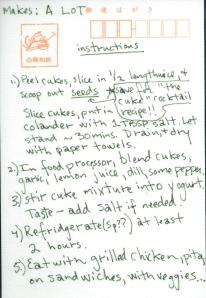 Makes: A LOT
郵便はがき
instructions
1.) Peel cukes, slice in 1/2 lengthwise, +
scoop out seeds → save in "the
Slice cukes, put in cuke" cocktail
colander with 1 TBSP salt. Let recipe!!
stand ~ 30 mins. Drain + dry
with paper towels.
2.) In food processor, blend cukes,
garlic, lemon juice, dill, some pepper.
3) stir cuke mixture into yogurt.
Taste - add salt if needed
4.) Refridgerate (sp??) at least
2 hours.
5.) Eat with grilled chicken, pita,
on sandwiches, with veggies...